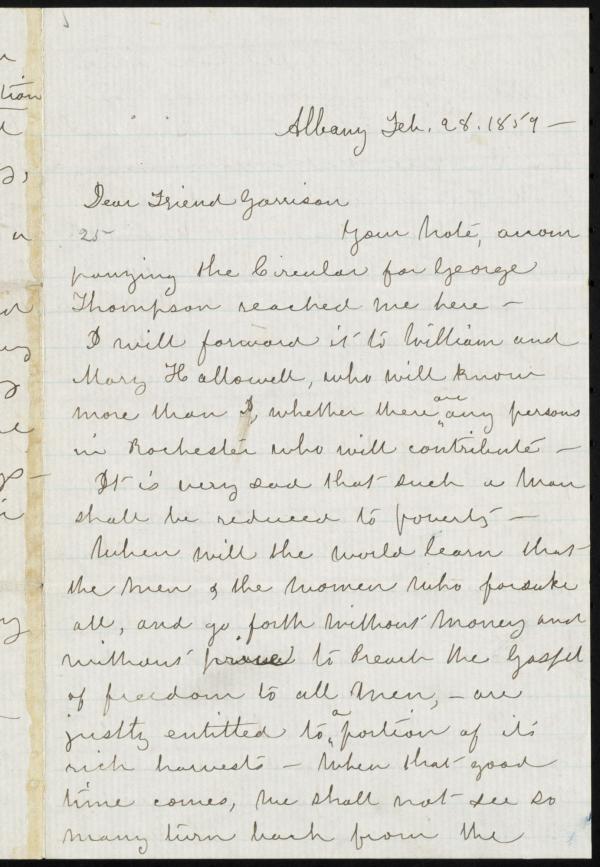 Albany Feb. 28. 1859 —
Dear Friend Garrison
25
Your note, accom
panying the Circular for George
Thompson reached me here —
I will forward it to William and
Mary Hallowell, who will know
more than I, whether there are any persons
in Rochester who will contribute —
It is very sad that such a man
shall be reduced to poverty —
When will the world learn that
the men & the women who forsake
all, and go forth without money and
without price to Preach the Gospel
of freedom to all men, — are
justly entitled to a portion of its
rich harvests — When that good
time comes, we shall not see so
many turn back from the